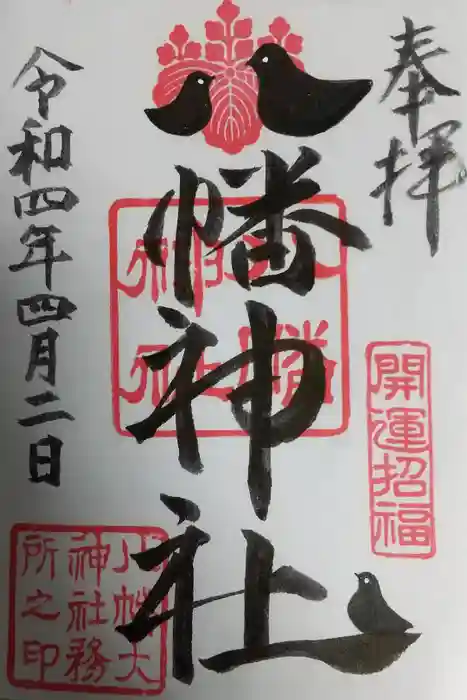 奉拝
開運招福
八幡神社
八幡大
神社務
所之印
令和四年四月二日